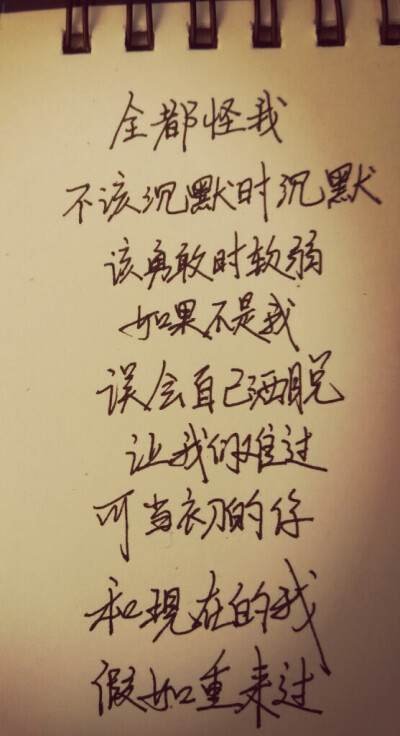 全都怪我
不该沉默时沉默
该勇敢时软弱
如果不是我
误会自己洒脱
让我们难过
可当初的你
和现在的我
假如重来过